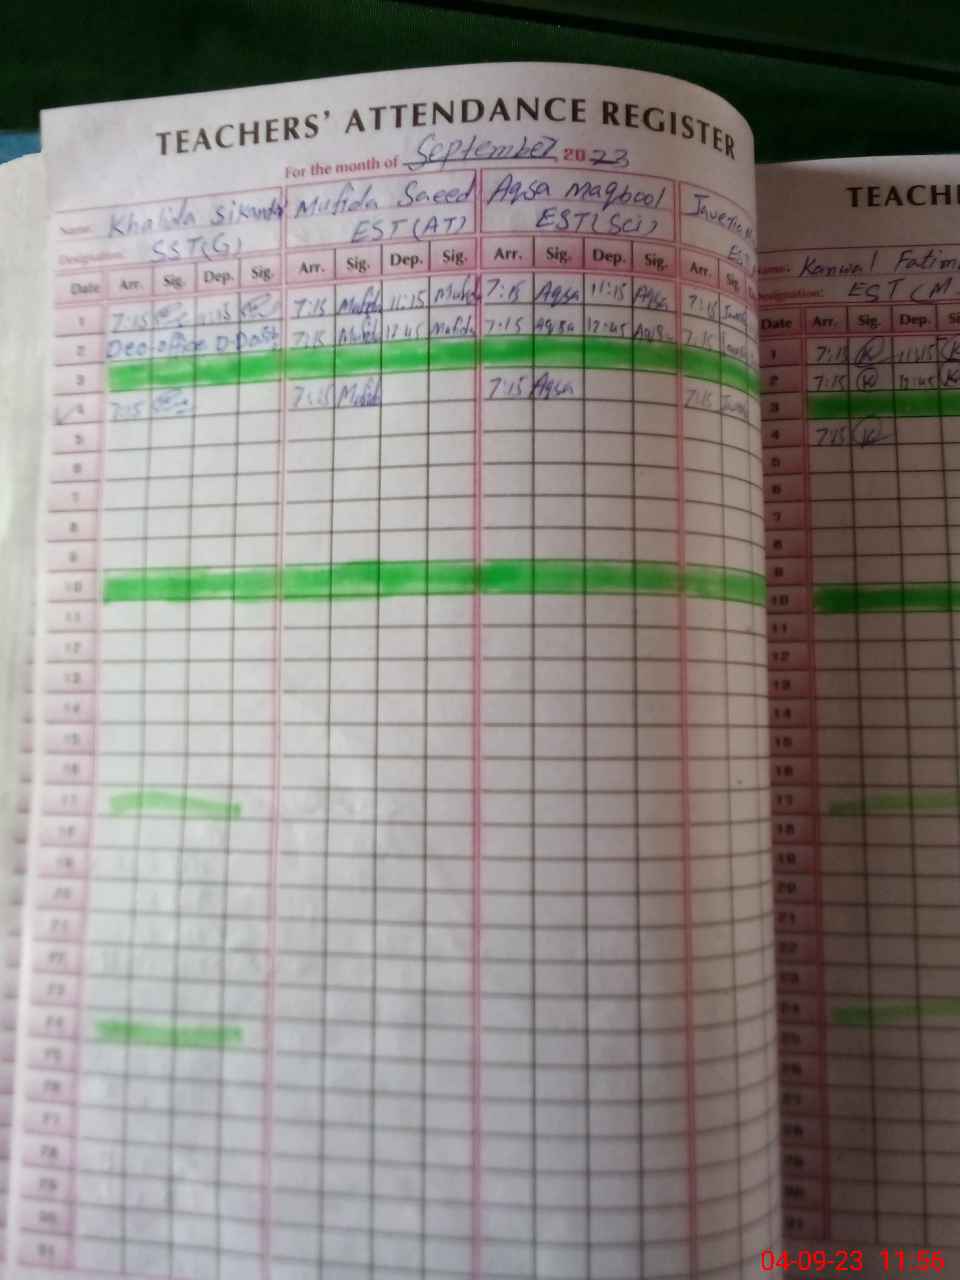 TEACHERS' ATTENDANCE REGISTER
For the month of September 2023
Name: Khalida Sikandar Mufida Saeed Aqsa Maqbool
Designation: SST(G) EST(AT) EST(Sci) EST
Date Arr. Sig. Dep. Sig. Arr. Sig. Dep. Sig. Arr. Sig. Dep. Sig. Arr. Sig.
1 7:15 11:15 7:15 Mufida 11:15 Mufida 7:15 Aqsa 11:15 Aqsa 7:15
2 Deo office 7:15 Mufida 12:45 Mufida 7:15 Aqsa 12:45 Aqsa 7:15
3
4 7:15 7:15 Mufida 7:15 Aqsa 7:15
5
6
7
8
9
10
11
12
13
14
15
16
17
18
19
20
21
22
23
24
25
26
27
28
29
30
31
TEACHE
Name: Kanwal Fatim
Designation: EST (M
Date Arr. Sig. Dep. Si
1 7:15 K 11:15
2 7:15 K 12:45
3
4 7:15 K
5
6
7
8
9
10
11
12
13
14
15
16
17
18
19
20
21
22
23
24
25
26
27
28
29
30
31
04-09-23 11:56